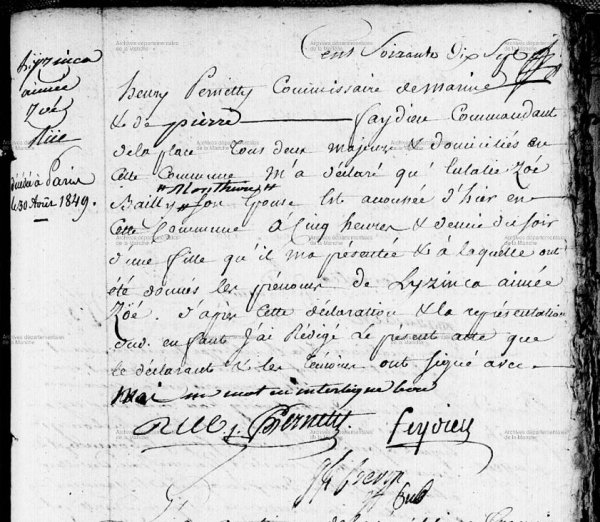 Cent Soixante Dix Sept
Lyzinca
aimée
Zoé
Rüe
décédée à Paris
le 30 Avril 1849.
henry Pernetty Commissaire de marine
& de pierre faydieu Commandant
de la place tous deux majeurs & domiciliés en
cette Commune m'a déclaré qu'Eulalie Zoé
"Monthurey"
Bailly son Epouse Est accouchée d'hier en
Cette Commune à Cinq heures & demie du soir
d'une fille qu'il m'a présentée & à laquelle ont
été donnés les prénoms de Lyzinca aimée
Zoé. d'après cette déclaration & la représentation
dud. enfant j'ai Rédigé le présent acte que
le déclarant & les témoins ont signé avec
moi un mot en interligne bon
Rüe Pernetty feydieu
Archives départementales
de la Manche